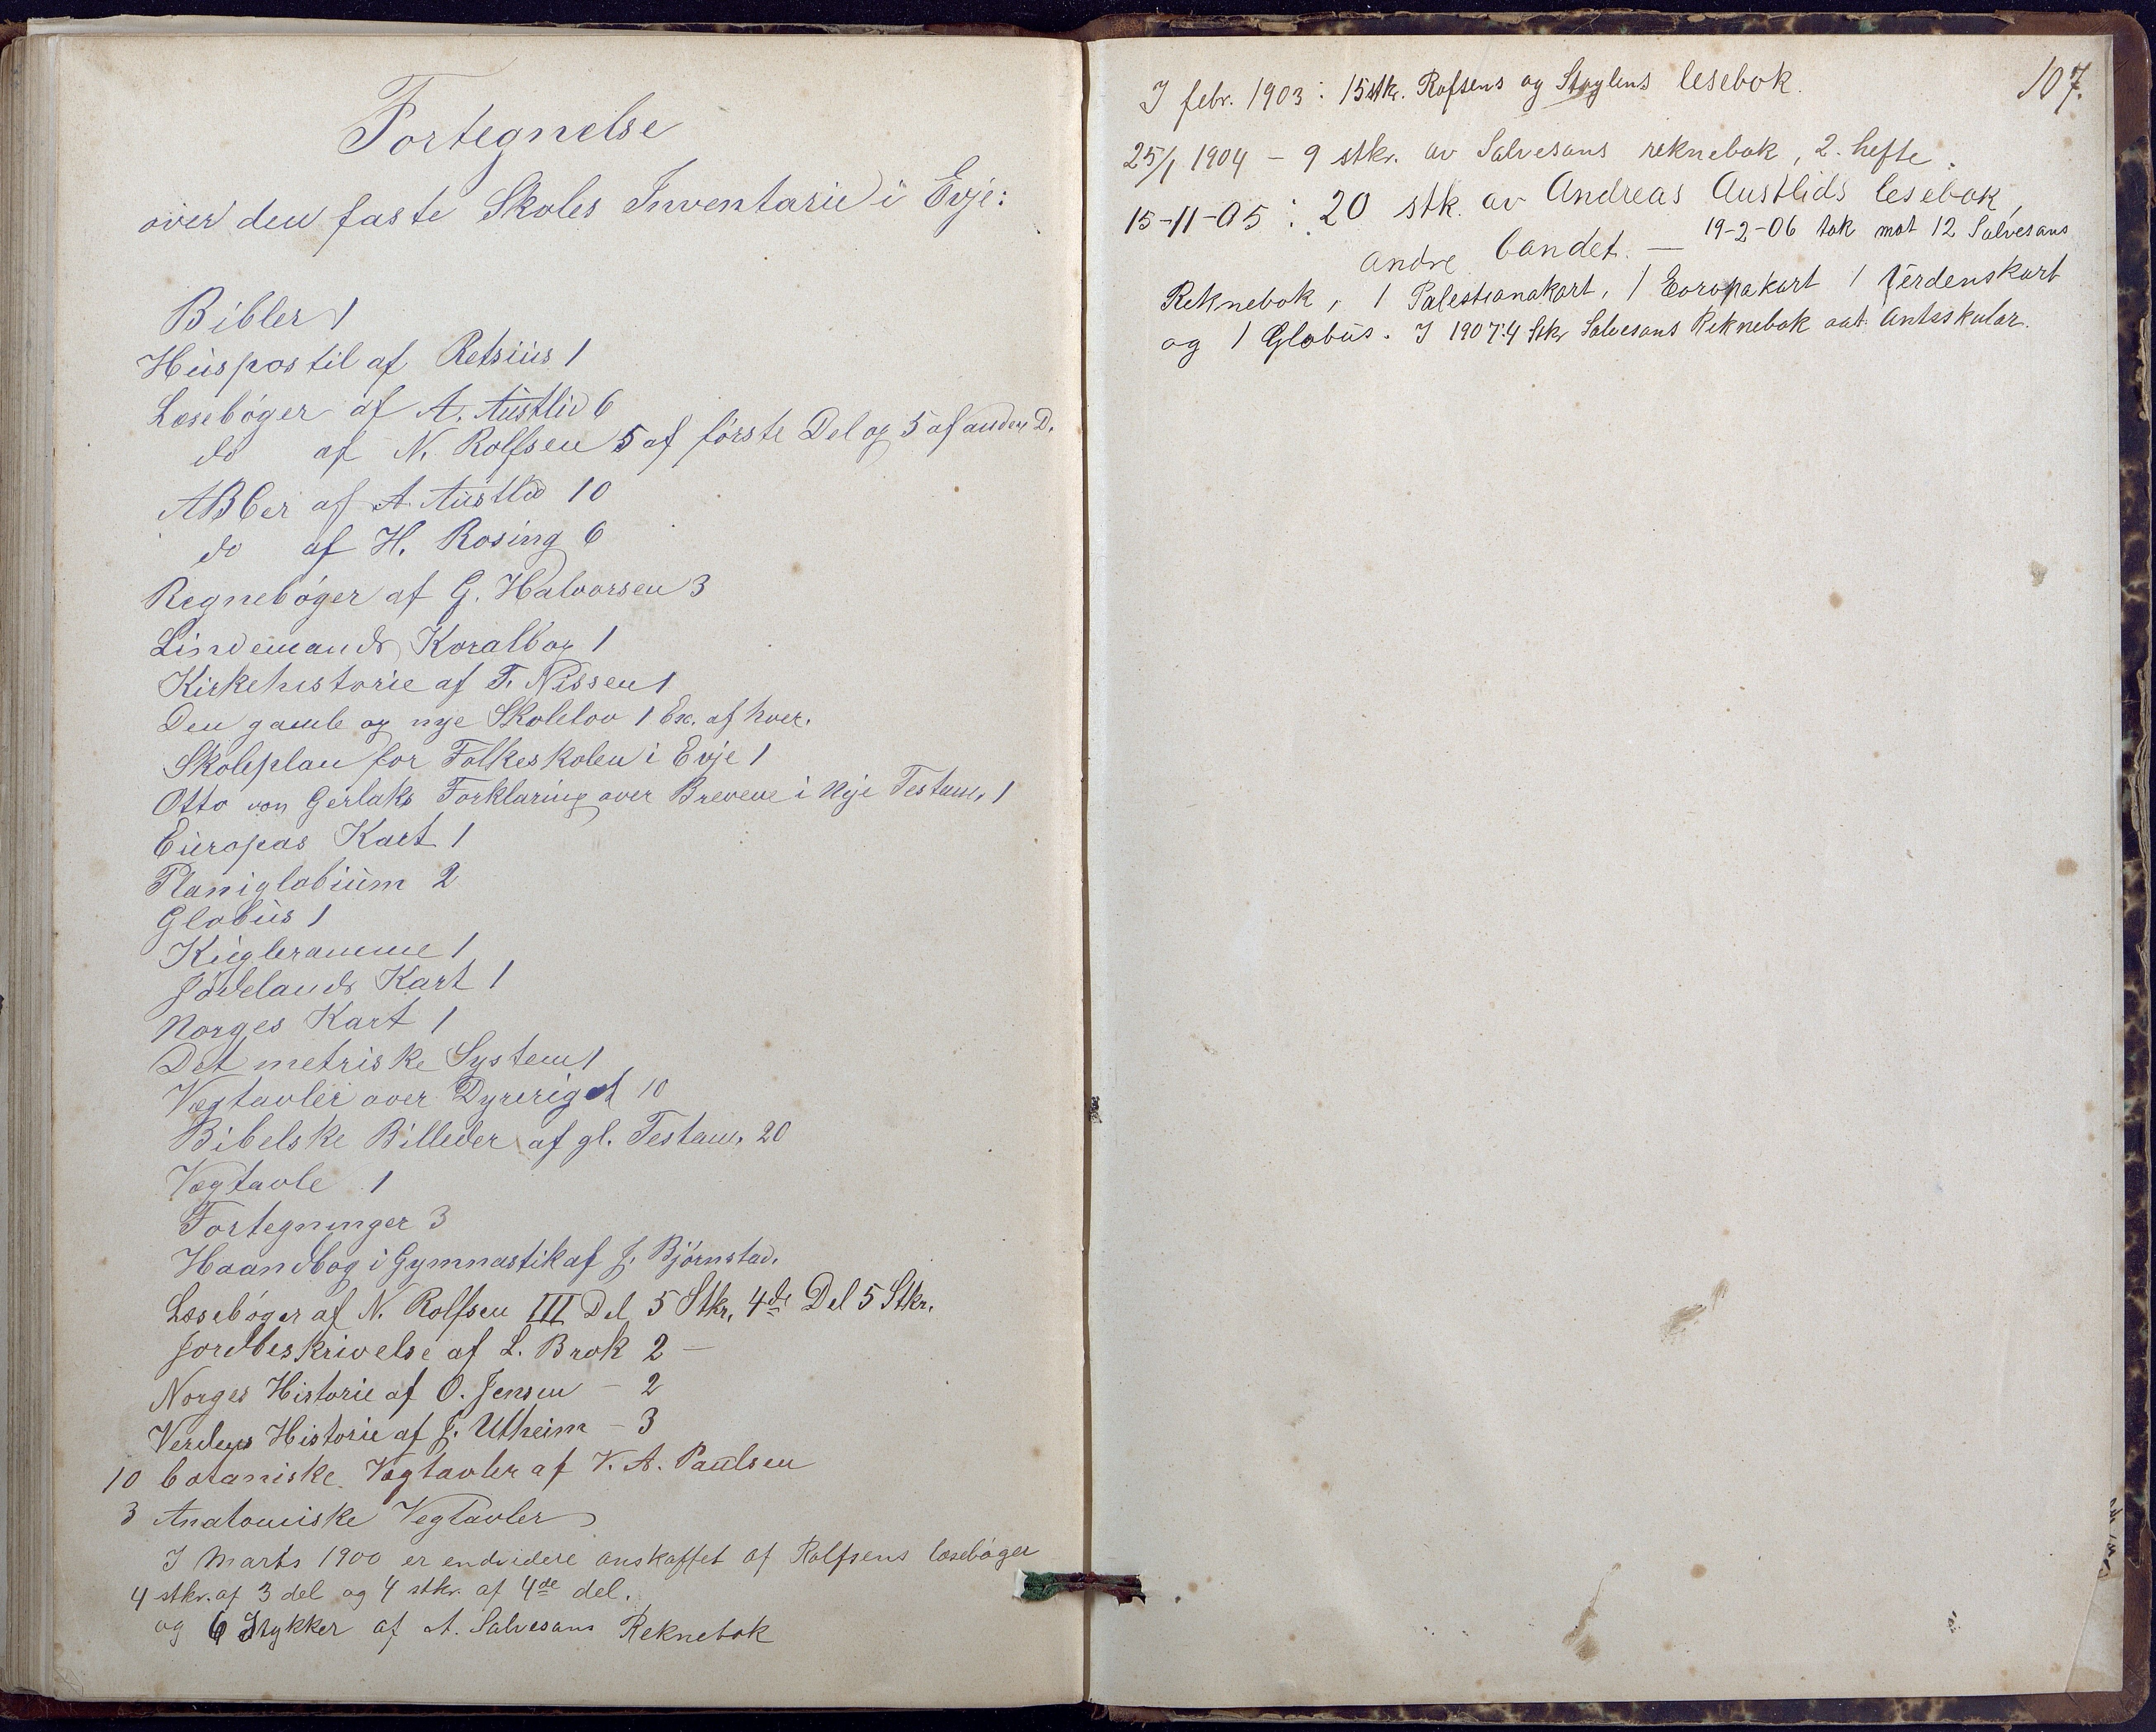 Fortegnelse
over den faste Skoles Inventarie i Evje:
Bibler 1
Huspostil af Retsius 1
Læsebøger af A. Austlid 6
do af N. Rolfsen 5 af første Del og 5 af anden D.
ABCer af A. Austlid 10
do af H. Rosing 6
Regnebøger af G. Halvorsen 3
Lindemands Koralbog 1
Kirkehistorie af F. Nissen 1
Den gamle og nye Skolelov 1 Ex. af hver.
Skoleplan for Folkeskolen i Evje 1
Otto von Gerlaks Forklaring over Brevene i Nye Testam. 1
Europas Kart 1
Planiglobium 2
Globus 1
Kugleramme 1
Jødelands Kart 1
Norges Kart 1
Det metriske System 1
Vægtavler over Dyreriget 10
Bibelske Billeder af gl. Testam. 20
Vægtavle 1
Fortegninger 3
Haandbog i Gymnastik af J. Bjørnstad.
Læsebøger af N. Rolfsen III Del 5 Stkr. 4de Del 5 Stkr.
Jordbeskrivelse af L. Brok 2 —
Norges Historie af O. Jensen – 2
Verdens Historie af J. Utheim – 3
10 botaniske Vægtavler af V. A. Paulsen
3 Anatomiske Vegtavler
I Marts 1900 er endvidere anskaffet af Rolfsens læsebøger
4 stkr. af 3 del og 4 stkr. af 4de del.
og 6 Stykker af A. Salvesans Reknebok
107.
I febr. 1903: 15 stk. Rofsens og Støylens lesebok.
25/1 1904 – 9 stkr. av Salvesans reknebok, 2. hefte.
15-11-05: 20 stk. av Andreas Austlids lesebok,
andre bandet. — 19-2-06 tok mot 12 Salvesans
Reknebok, 1 Palestianakart, 1 Europakart 1 Verdenskart
og 1 Globus. I 1907: 4 Stkr Salvesans Reknebok aat Antsskular.